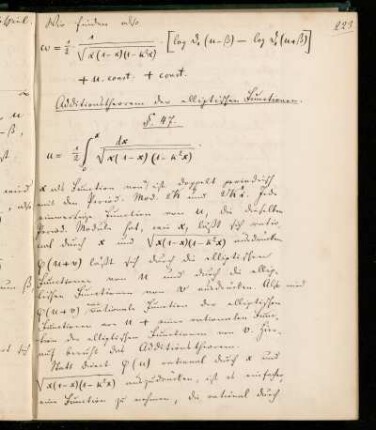 221
Wir finden also
w = \frac{1}{2} \frac{1}{\sqrt{x(1-x)(1-k^2x)}} [log ϑ_0 (u-ß) - log ϑ_0 (u+ß)]
+ u. const. + const.
Additionstheorem der elliptischen Functionen.
§. 47.
u = \frac{1}{2} \int_0^x \frac{dx}{\sqrt{x(1-x)(1-k^2x)}}.
x als Function von u ist doppelt periodisch
mit den Period. Mod. 2K und 2K'i. Jede
einwerthige Function von u, die dieselben
Period. Moduln hat, wie x, läßt sich ratio
nal durch x und \sqrt{x(1-x)(1-k^2x)} ausdrücken
φ(u+v) läßt sich durch die elliptischen
Functionen von u und durch die ellip-
tischen Functionen von v ausdrücken. Also wird
φ(u+v) rationale Function der elliptischen
Functionen von u + einer rationalen Func-
tion der elliptischen Functionen von v. Hier-
auf beruht das Additionstheorem.
Statt direct φ(u) rational durch x und
\sqrt{x(1-x)(1-k^2x)} auszudrücken, ist es einfacher,
eine Function zu nehmen, die rational durch